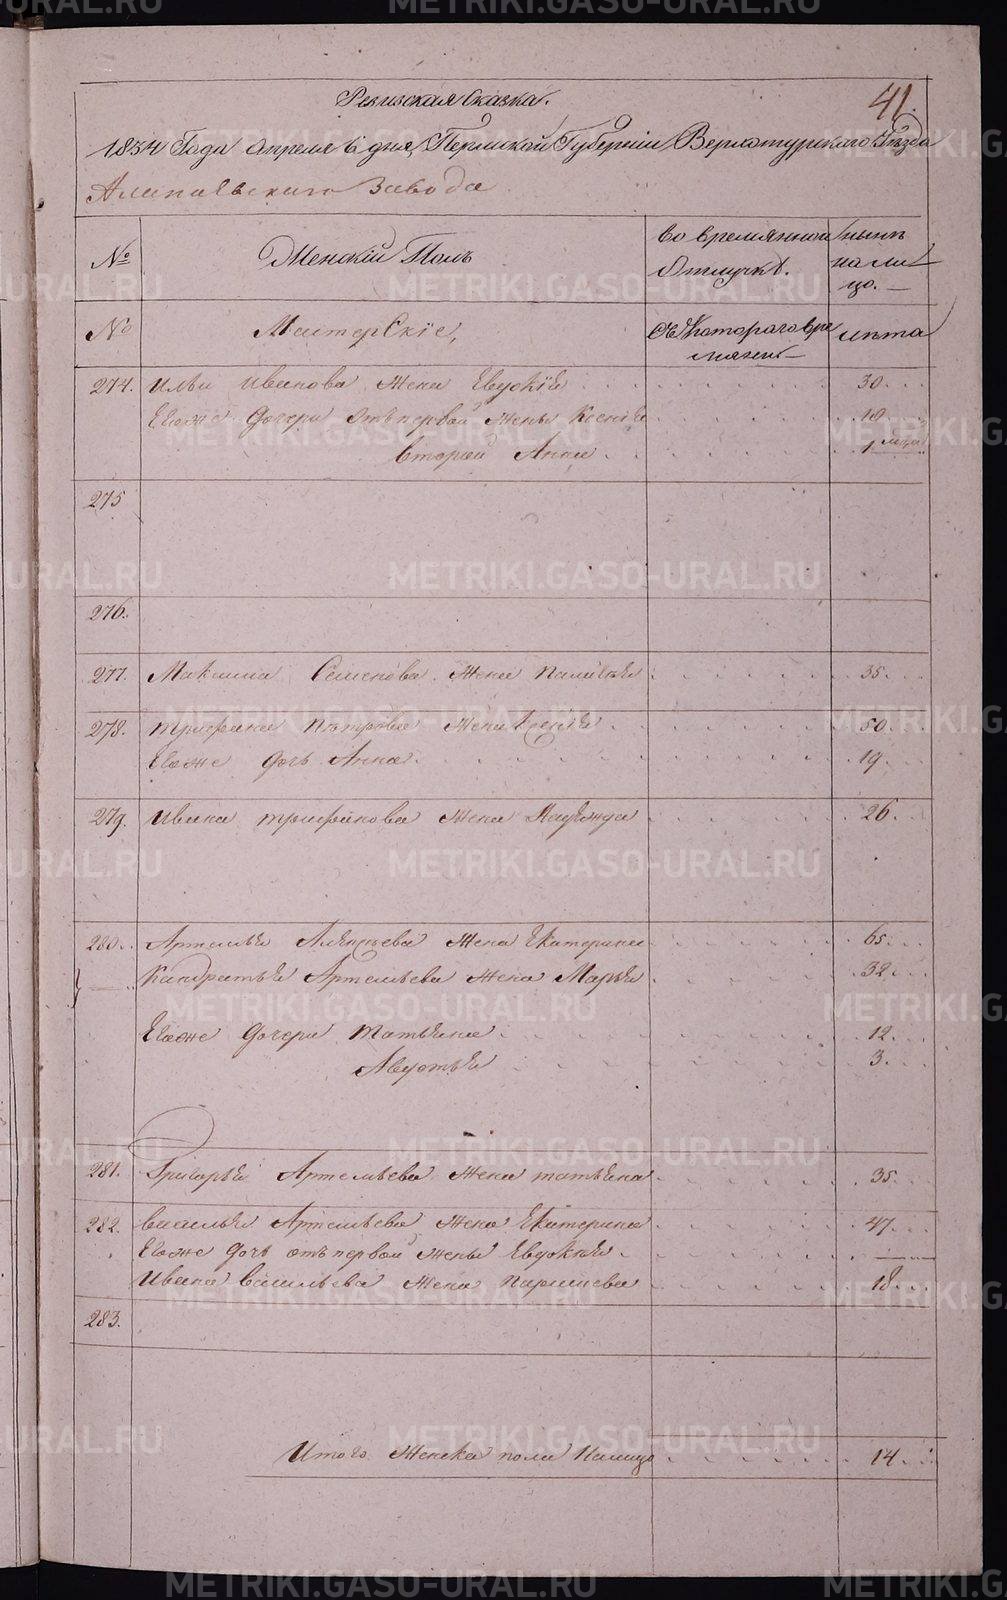 41.
Ревизская Сказка.
1854 Года Апреля 6 дня, Пермской Губернiи Верхотурскаго Уѣзда
Алапаевскаго Завода
№ Женскiй Полъ во времянной отлучкѣ. нынѣ на лицо.
№ Мастерскiе, Съ Котораго времяни лѣта
274. Ильи Иванова жена Евдокiя 30.
Егоже дочери отъ первой жены Ксенiя 10
второй Анна 1 мца
275
276.
277. Максима Семенова жена 35.
278. Трифана Пѣтрова жена Ксенiя 50.
Егоже дочь Анна 19.
279. Ивана Трифанова жена Надежда 26.
280. Артемья жена Екатерина 65.
Кандратья Артемьева жена Марья 32.
Егоже дочери Татьяна 12.
Авдотья 3.
281. Григорья Артемьева жена Татьяна 35.
282. Василья Артемьева жена Екатерина 47.
Егоже дочь отъ первой жены Евдокия —
Ивана Васильева жена 18.
283.
Итого Женска пола Налицо 14.
METRIKI.GASO-URAL.RU